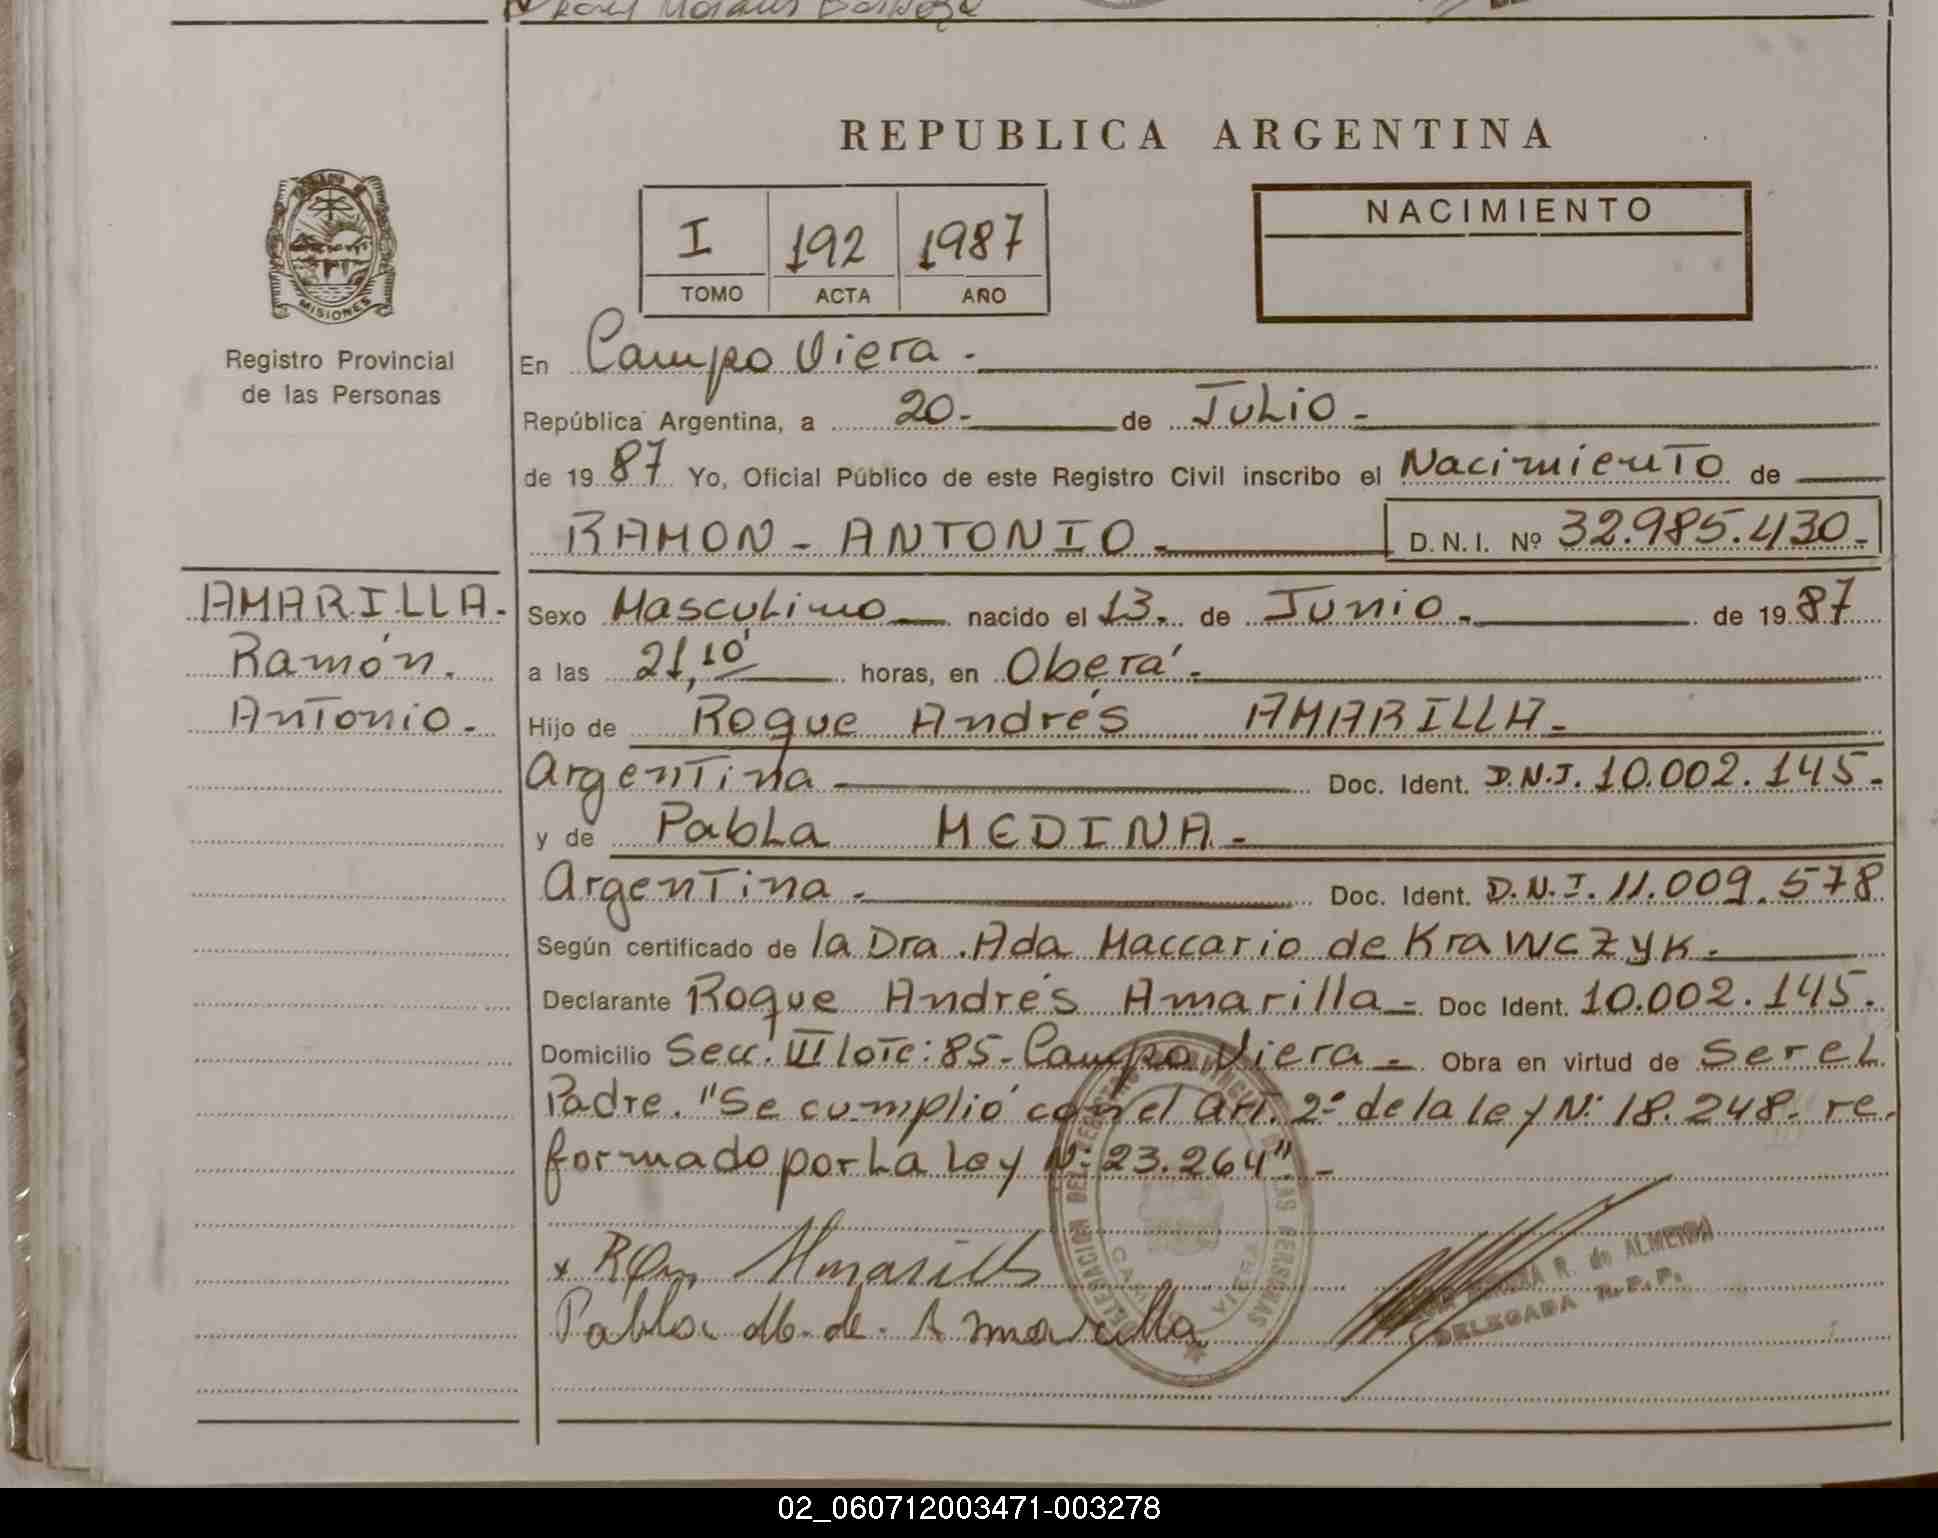 REPUBLICA ARGENTINA
MISIONES
Registro Provincial
de las Personas
I 192 1987
TOMO ACTA AÑO
NACIMIENTO
En Campo Viera.
República Argentina, a 20- de Julio-
de 1987 Yo, Oficial Público de este Registro Civil inscribo el Nacimiento de
RAMON - ANTONIO - D.N.I. Nº 32.985.430-
AMARILLA.
Ramón.
Antonio.-
Sexo Masculino nacido el 13. de Junio. de 1987
a las 21,10 horas, en Oberá.-
Hijo de Roque Andrés AMARILLA-
Argentina Doc. Ident. D.N.I. 10.002.145-
y de Pabla MEDINA.-
Argentina. Doc. Ident. D.N.I. 11.009.578
Según certificado de la Dra. Ada Maccario de Krawczyk.
Declarante Roque Andrés Amarilla- Doc Ident. 10.002.145.
Domicilio Secc. III lote: 85- Campo Viera- Obra en virtud de ser el
Padre. "Se cumplió con el art. 2º de la ley Nº 18.248- re.
formado por la ley Nº 23.264"-
DELEGACION DEL REGISTRO PROVINCIAL DE LAS PERSONAS
CAMPO VIERA
x Amarilla
Pabla M. de. Amarilla
R. de ALMEIDA
DELEGADA R.P.P.
02_060712003471-003278